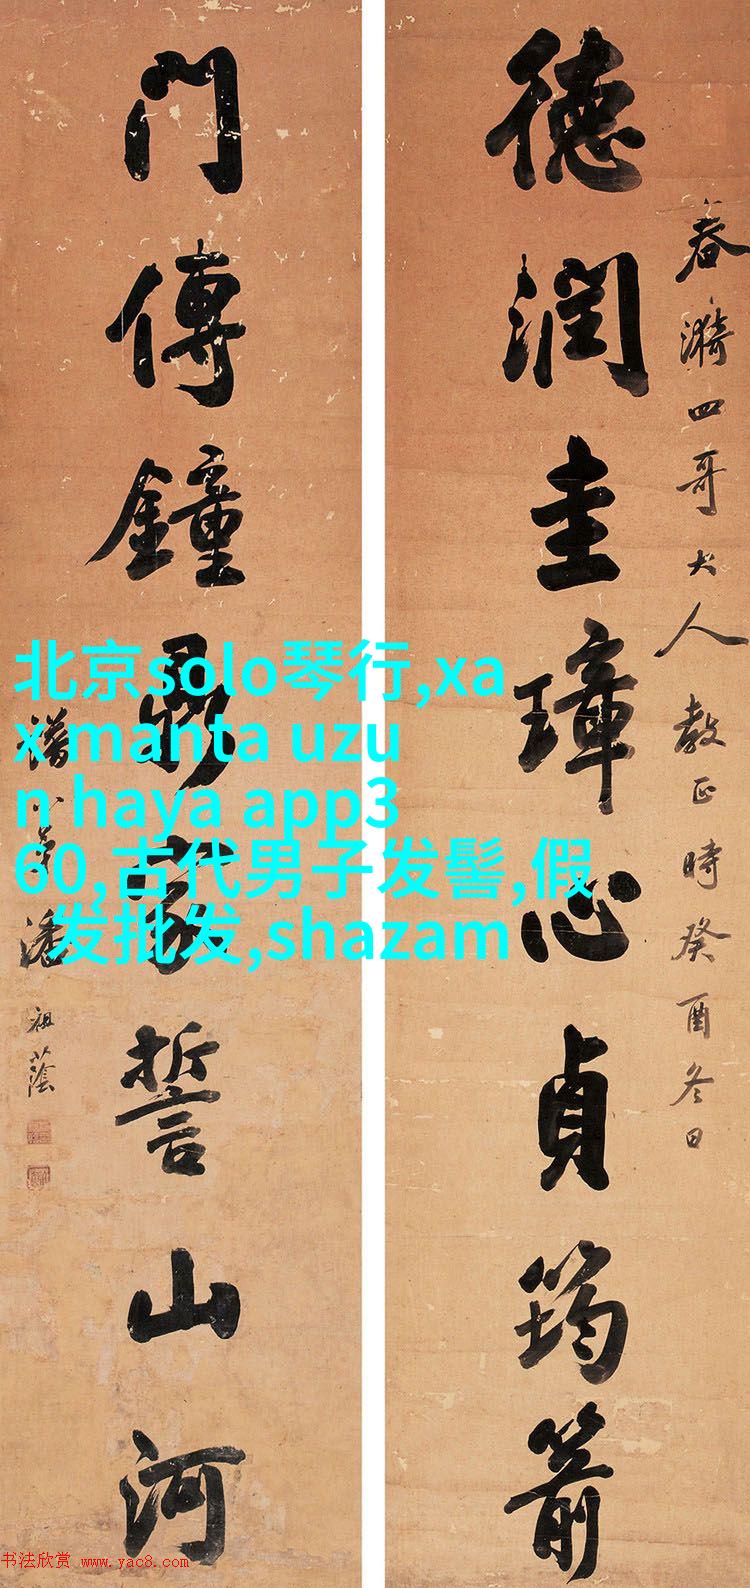 春漪四哥大人教正時癸酉冬日
德潤圭璋心貞筠箭
門傳鐘鼎家誓山河
譜小弟潘祖蔭
北京solo琴行,xa
x manta uzu
n haya app3
60,古代男子发髻,假
发批发,shazam
书法欣赏 www.yac8.com